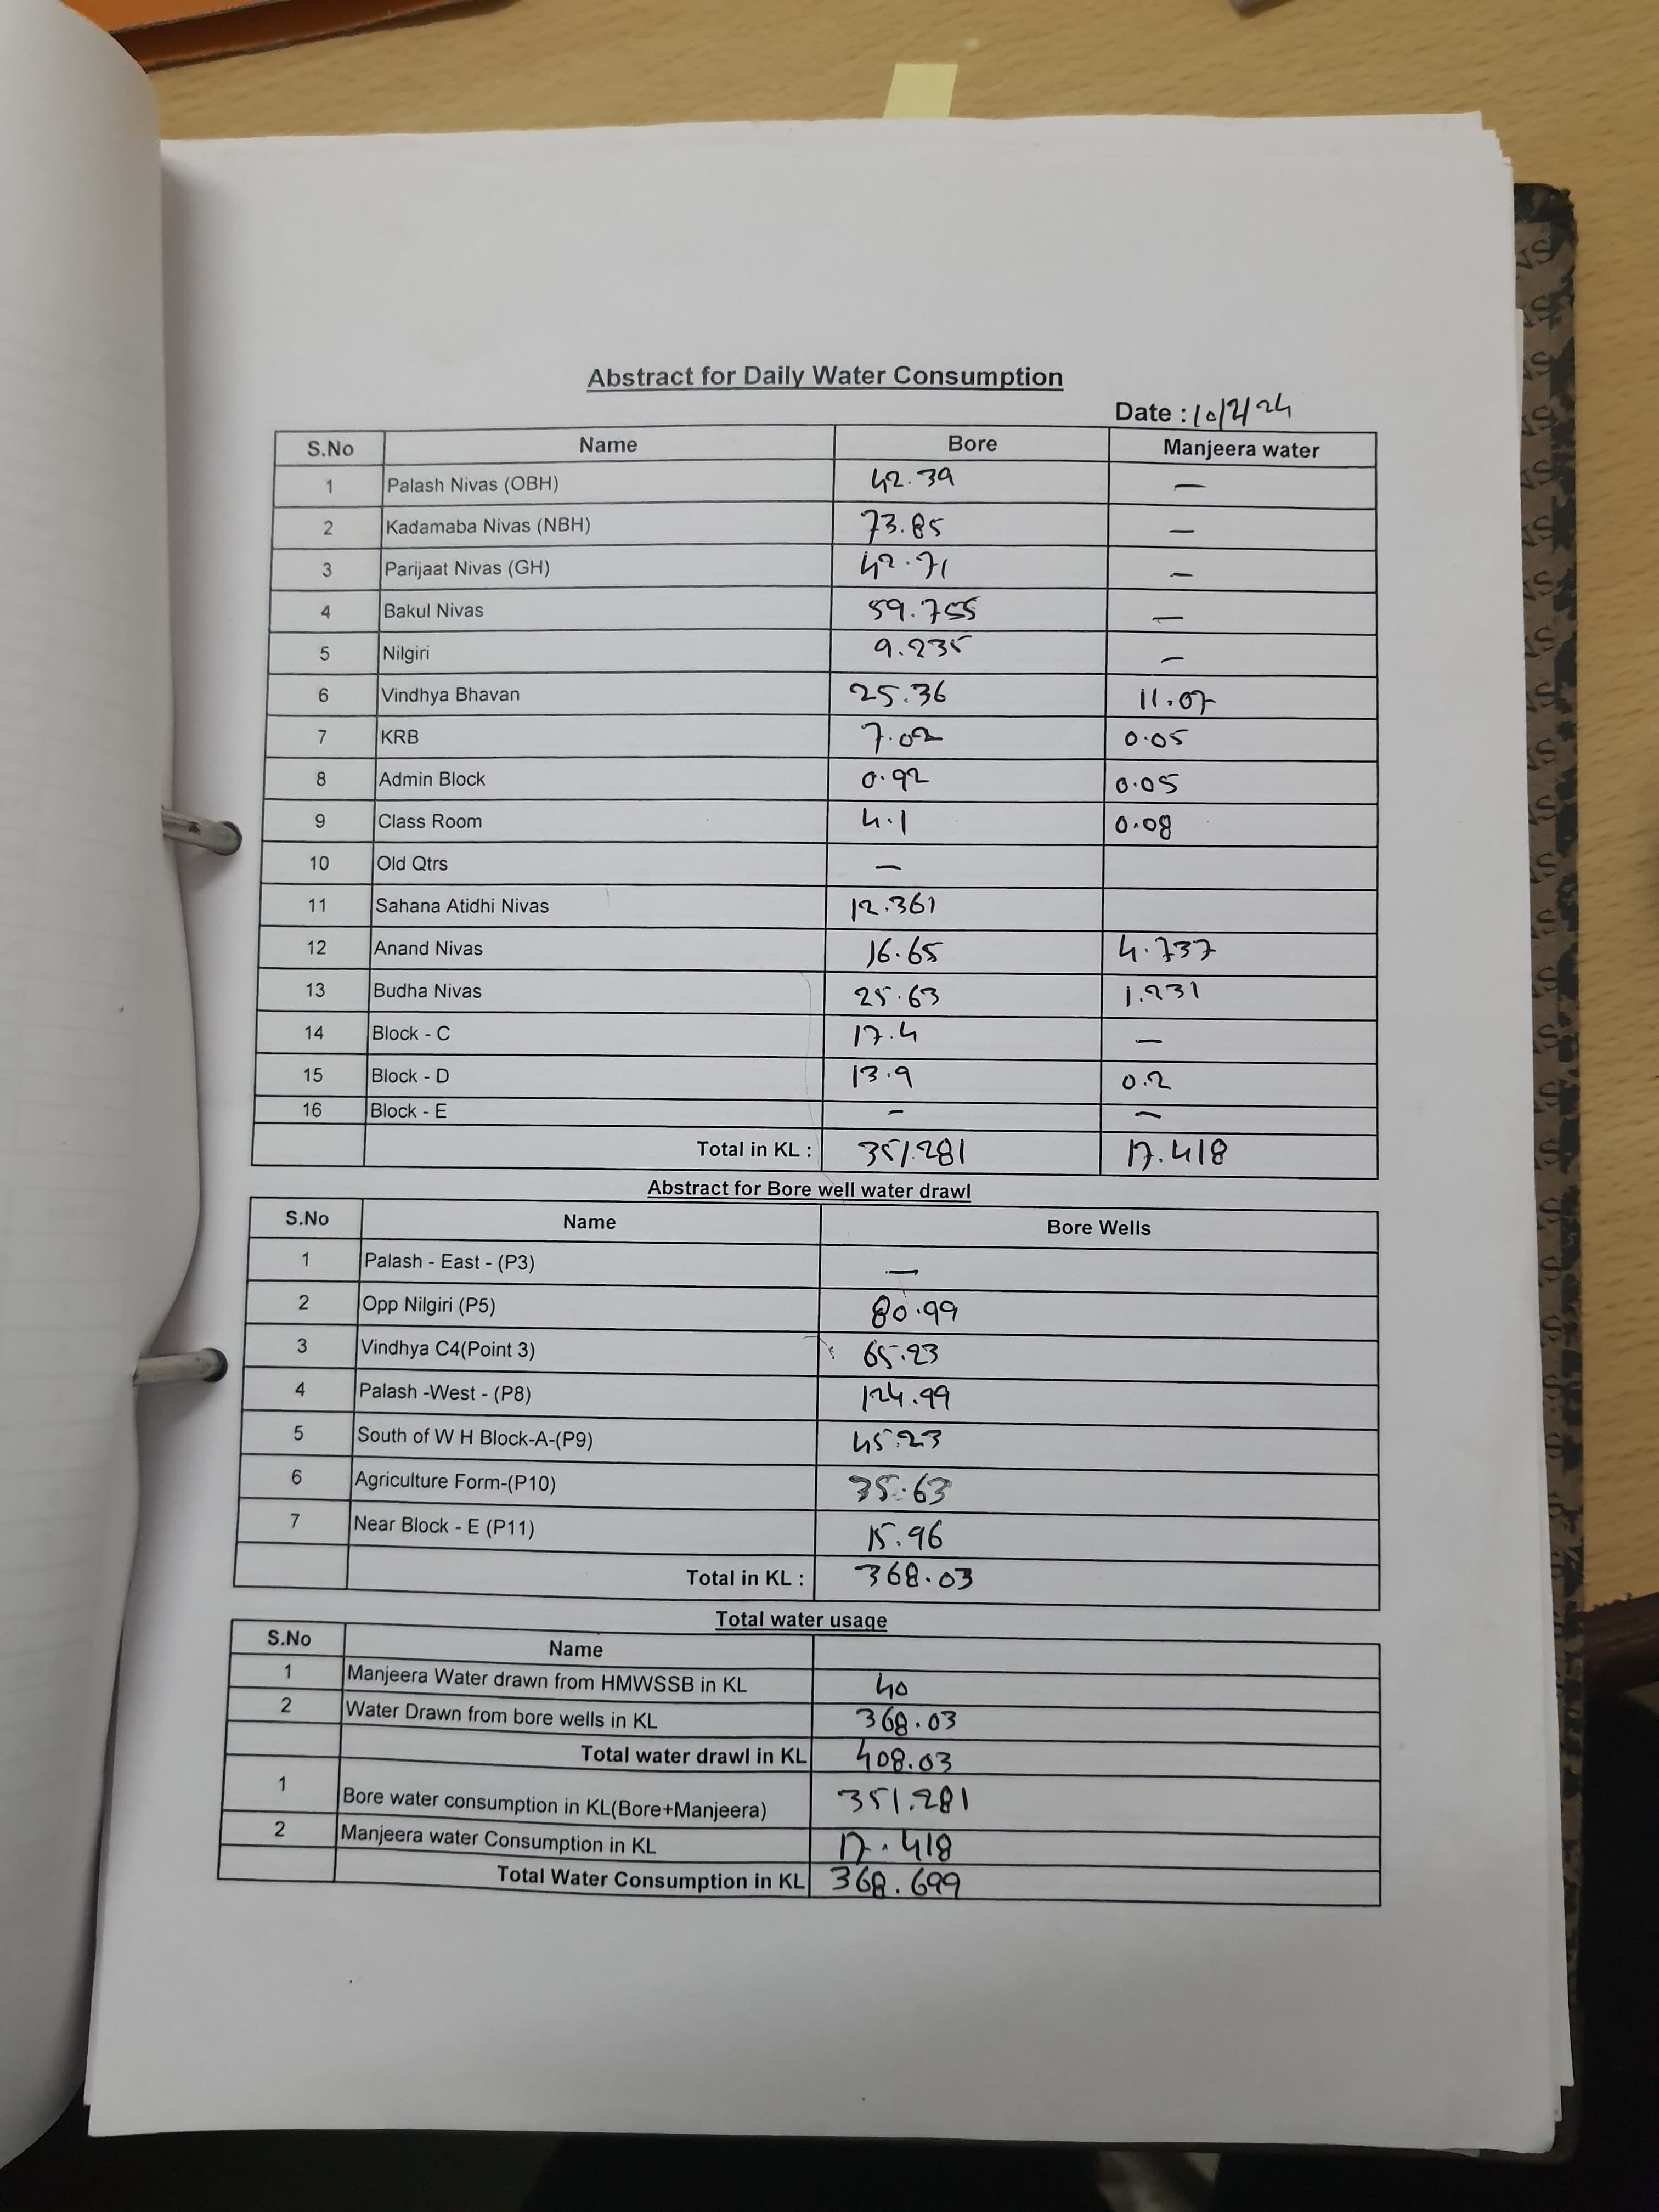 Abstract for Daily Water Consumption
Date : 10/2/24
S.No Name Bore Manjeera water
1 Palash Nivas (OBH) 42.39 —
2 Kadamaba Nivas (NBH) 73.85 —
3 Parijaat Nivas (GH) 42.71 —
4 Bakul Nivas 59.755 —
5 Nilgiri 9.235 —
6 Vindhya Bhavan 25.36 11.07
7 KRB 7.02 0.05
8 Admin Block 0.92 0.05
9 Class Room 4.1 0.08
10 Old Qtrs —
11 Sahana Atidhi Nivas 12.361
12 Anand Nivas 16.65 4.737
13 Budha Nivas 25.63 1.231
14 Block - C 17.4 —
15 Block - D 13.9 0.2
16 Block - E — —
Total in KL : 351.281 17.418
Abstract for Bore well water drawl
S.No Name Bore Wells
1 Palash - East - (P3) —
2 Opp Nilgiri (P5) 80.99
3 Vindhya C4(Point 3) 65.23
4 Palash -West - (P8) 124.99
5 South of W H Block-A-(P9) 45.23
6 Agriculture Form-(P10) 35.63
7 Near Block - E (P11) 15.96
Total in KL : 368.03
Total water usage
S.No Name
1 Manjeera Water drawn from HMWSSB in KL 40
2 Water Drawn from bore wells in KL 368.03
Total water drawl in KL 408.03
1 Bore water consumption in KL(Bore+Manjeera) 351.281
2 Manjeera water Consumption in KL 17.418
Total Water Consumption in KL 368.699